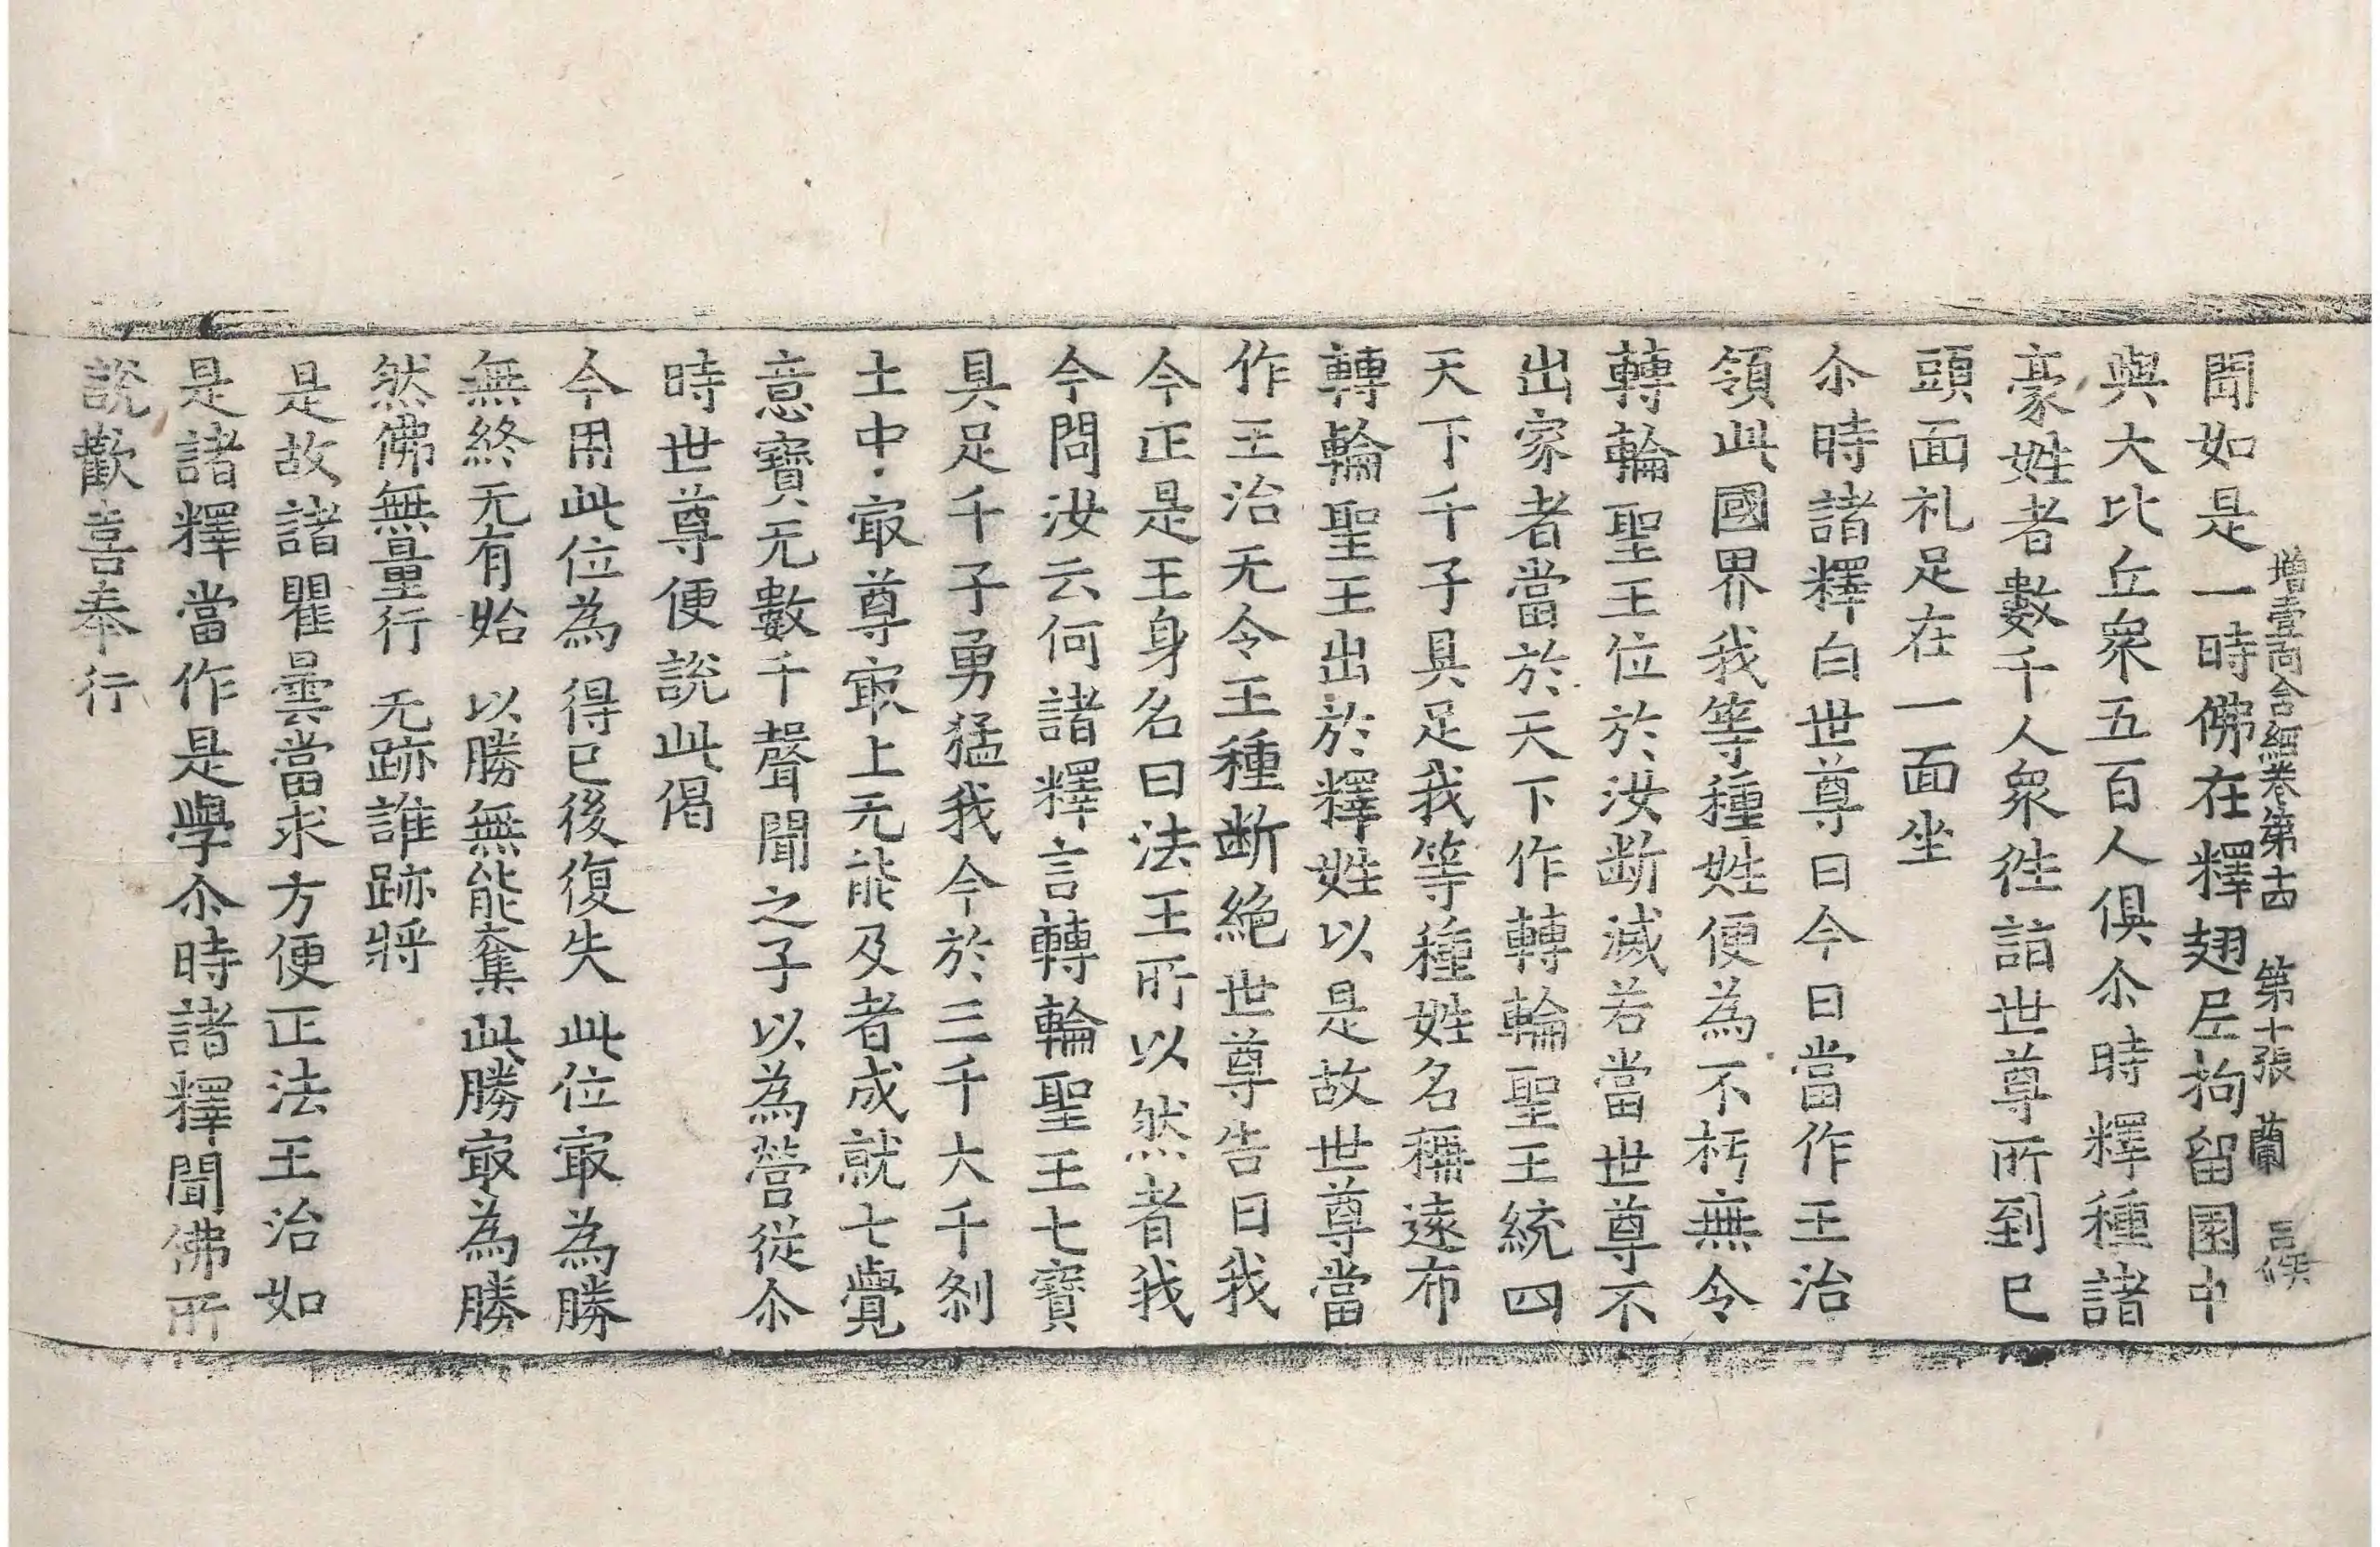 增壹阿含経卷第十四　第十張　蘭
聞如是一時佛在釋翅尼拘留園中
與大比丘衆五百人俱尒時釋種諸
豪姓者數千人衆徃詣世尊所到已
頭面礼足在一面坐
尒時諸釋白世尊曰今日當作王治
領此國界我等種姓便為不朽無令
轉輪聖王位於汝断滅若當世尊不
出家者當於天下作轉輪聖王統四
天下千子具足我等種姓名稱遠布
轉輪聖王出於釋姓以是故世尊當
作王治无令王種断絶世尊告曰我
今正是王身名曰法王所以然者我
今問汝云何諸釋言轉輪聖王七寶
具足千子勇猛我今於三千大千刹
土中冣尊冣上无能及者成就七覺
意寶无數千聲聞之子以為營從尒
時世尊便說此偈
今用此位為　得已後復失　此位冣為勝
無終无有始　以勝無能奪　此勝冣為勝
然佛無量行　无跡誰跡將
是故諸瞿曇當求方便正法王治如
是諸釋當作是學尒時諸釋聞佛所
說歡喜奉行